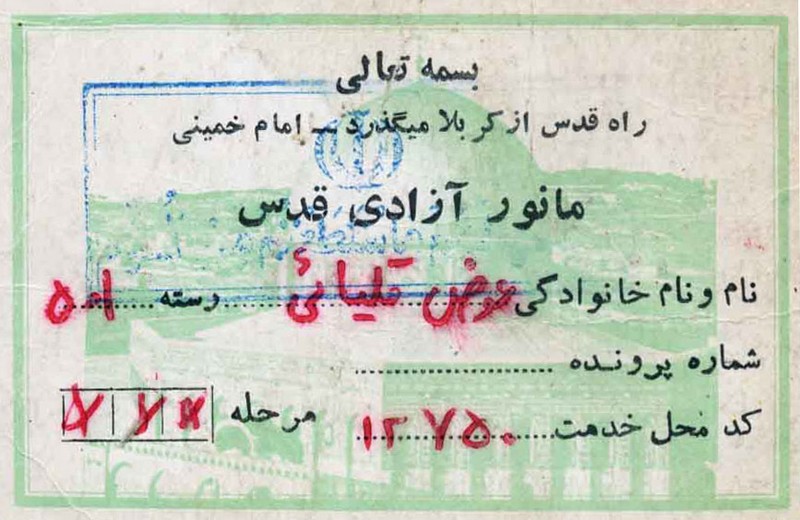 بسمه تعالی
راه قدس از کربلا میگذرد ـ امام خمینی
مانور آزادی قدس
نام و نام خانوادگی عوض قلیائی رسته
شماره پرونده
کد محل خدمت ۱۲۷۵۰ مرحله